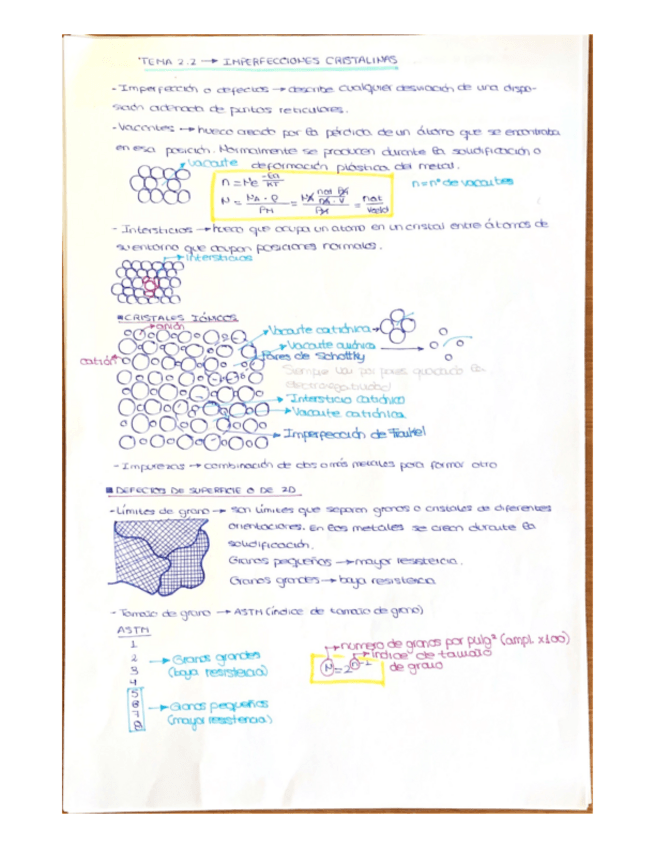 TEMA 2.2 → IMPERFECCIONES CRISTALINAS
- Imperfección o defectos → describe cualquier desviación de una dispo-
sición ordenada de puntos reticulares.
- Vacantes → hueco creado por la pérdida de un átomo que se encontraba
en esa posición. Normalmente se producen durante la solidificación o
vacante deformación plástica del metal.
n = Ne^(-En/KT)
n = nº de vacantes
- Intersticios → hueco que ocupa un atomo en un cristal entre átomos de
su entorno que ocupan posiciones normales.
Intersticios
■ CRISTALES IÓNICOS
anión
Vacante catiónica →
Vacante aniónica
catión
Pares de Schottky
Siempre van por pares guardado la
Intersticio catiónico
Vacante catiónica
Imperfección de Frenkel
- Impurezas → combinación de dos o más metales para formar otro
■ DEFECTOS DE SUPERFICIE O DE 2D
- Límites de grano → son límites que separan granos o cristales de diferentes
orientaciones. En los metales se crean durante la
solidificación.
Granos pequeños → mayor resistencia.
Granos grandes → baja resistencia
- Tamaño de grano → ASTM (índice de tamaño de grano)
ASTM
1
2 → Granos grandes
3 (baja resistencia)
4
5
6 → Granos pequeños
7 (mayor resistencia)
8
número de granos por pulg² (ampl. x100)
índice de tamaño
de grano
N = 2^(n-1)